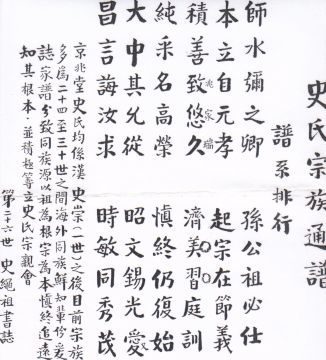 史氏通譜
譜系排行
師水彌之卿 孫公祖必仕
本立自元孝 起宗在節義
積善致悠久 濟美習庭訓
兆家瑞
純采名高榮 慎終仍復始
大中其允從 昭文錫光愛
昌言誨汝求 時敏同秀茂
京兆堂 史氏均係漢 史崇(一世)之後目前宗族
多為二十四至三十世之間海外同族鮮知輩份爰
誌家譜兮致同族源以祖為根宗為本慎終追遠
知其根本·並積極等立史氏宗親會
第二十六世 史繩祖書誌